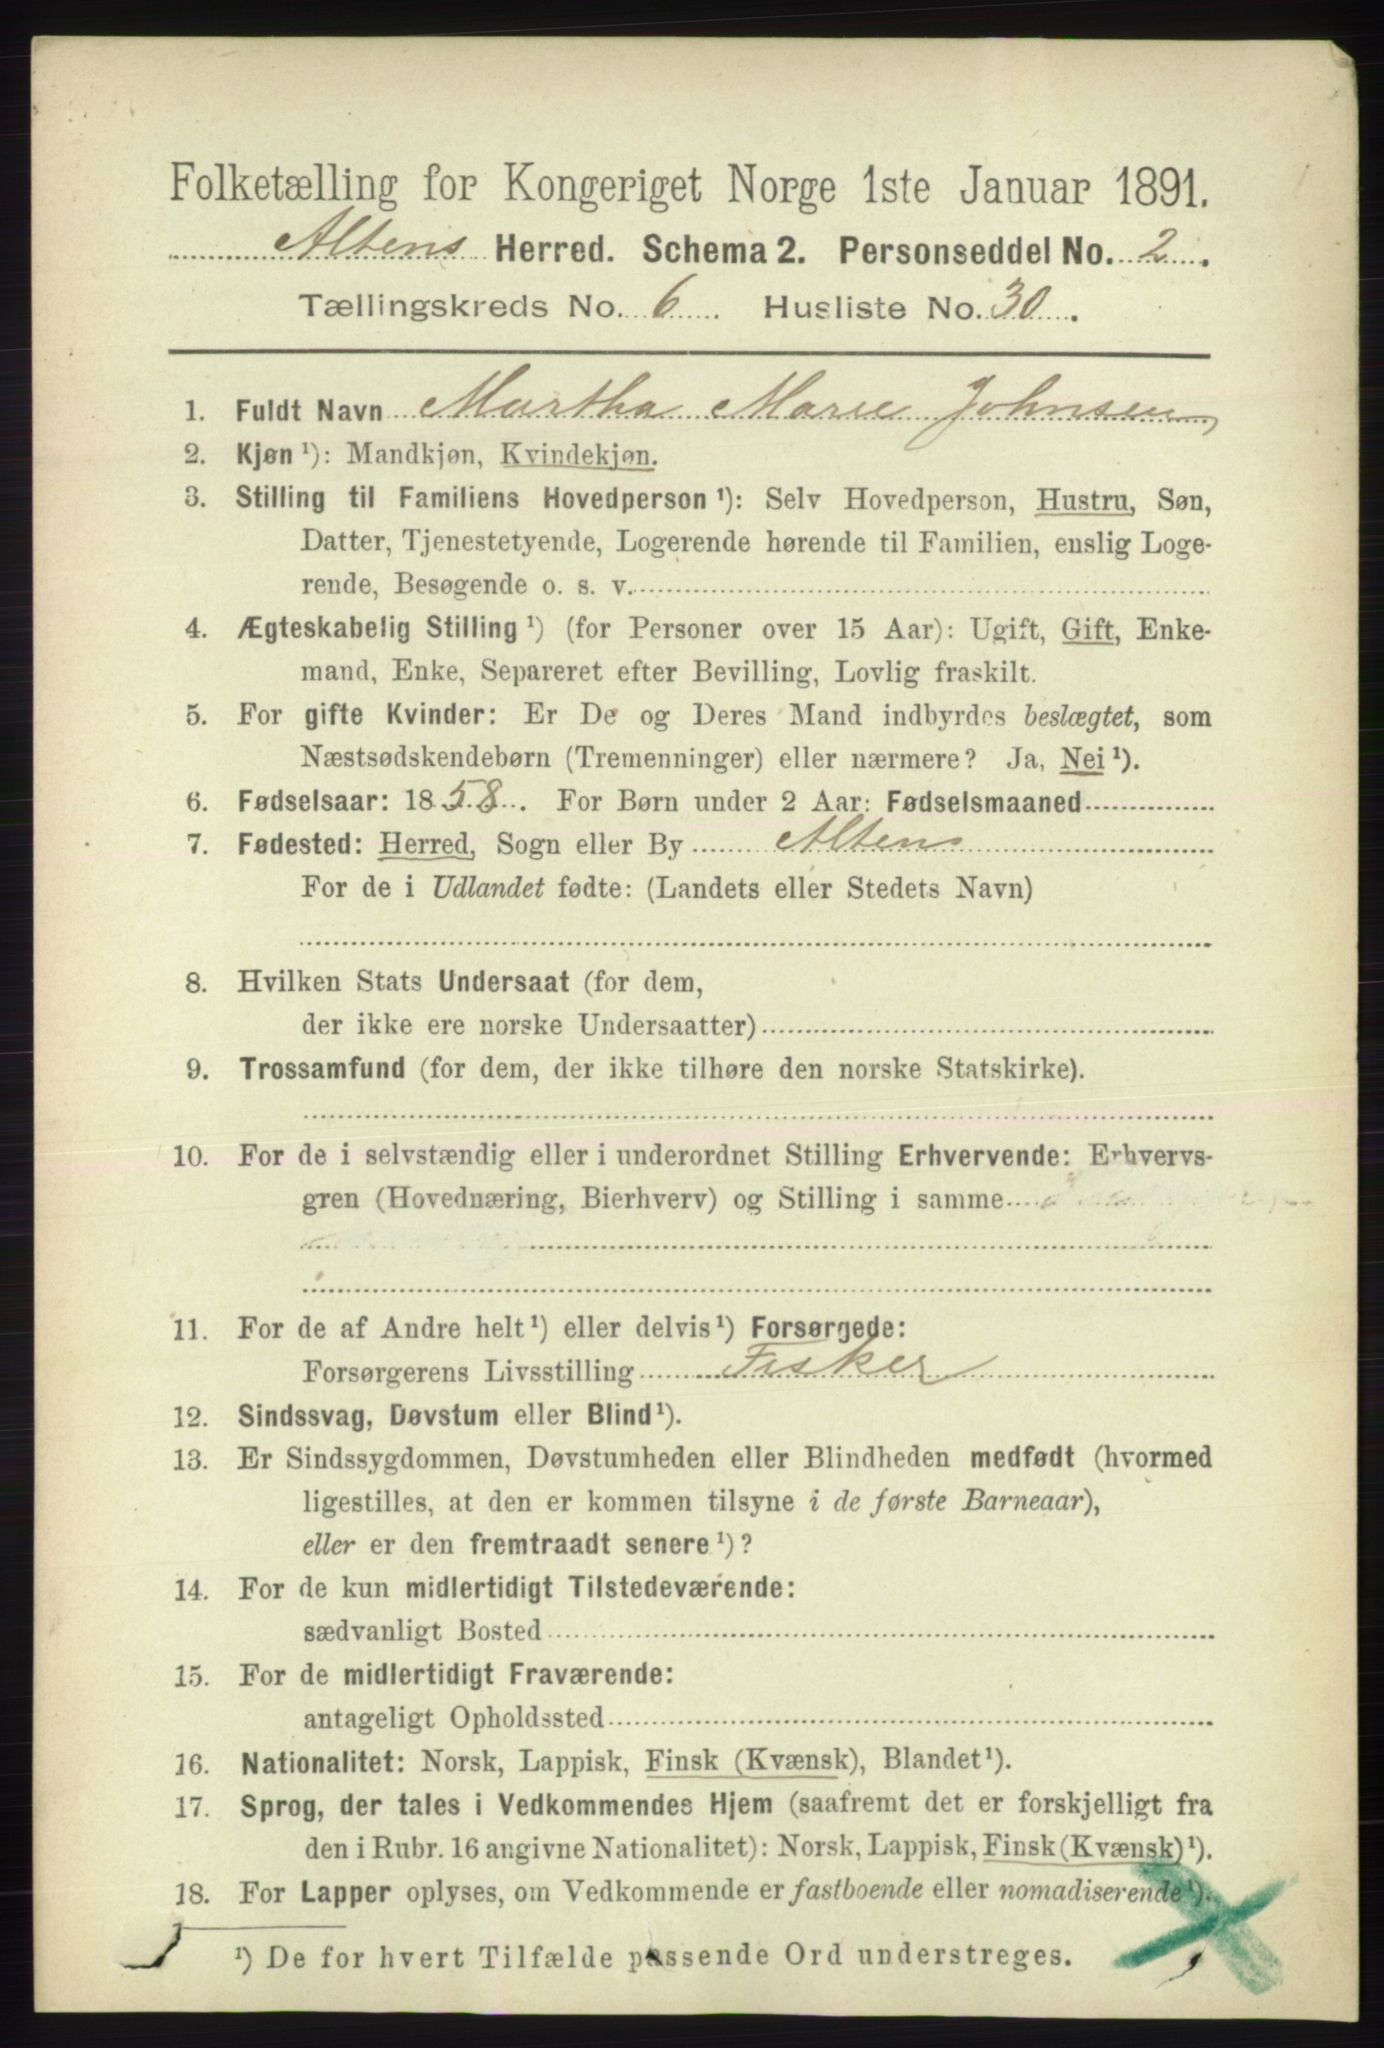 Folketælling for Kongeriget Norge 1ste Januar 1891.
Altens Herred. Schema 2. Personseddel No. 2.
Tællingskreds No. 6. Husliste No. 30.
1. Fuldt Navn Martha Marie Johnsen
2. Kjøn ¹): Mandkjøn, Kvindekjøn.
3. Stilling til Familiens Hovedperson ¹): Selv Hovedperson, Hustru, Søn,
Datter, Tjenestetyende, Logerende hørende til Familien, enslig Loge-
rende, Besøgende o. s. v.
4. Ægteskabelig Stilling ¹) (for Personer over 15 Aar): Ugift, Gift, Enke-
mand, Enke, Separeret efter Bevilling, Lovlig fraskilt.
5. For gifte Kvinder: Er De og Deres Mand indbyrdes beslægtet, som
Næstsødskendebørn (Tremenninger) eller nærmere? Ja, Nei ¹).
6. Fødselsaar: 1858. For Børn under 2 Aar: Fødselsmaaned
7. Fødested: Herred, Sogn eller By Altens
For de i Udlandet fødte: (Landets eller Stedets Navn)
8. Hvilken Stats Undersaat (for dem,
der ikke ere norske Undersaatter)
9. Trossamfund (for dem, der ikke tilhøre den norske Statskirke).
10. For de i selvstændig eller i underordnet Stilling Erhvervende: Erhvervs-
gren (Hovednæring, Bierhverv) og Stilling i samme
11. For de af Andre helt ¹) eller delvis ¹) Forsørgede:
Forsørgerens Livsstilling Fisker
12. Sindssvag, Døvstum eller Blind ¹).
13. Er Sindssygdommen, Døvstumheden eller Blindheden medfødt (hvormed
ligestilles, at den er kommen tilsyne i de første Barneaar),
eller er den fremtraadt senere ¹)?
14. For de kun midlertidigt Tilstedeværende:
sædvanligt Bosted
15. For de midlertidigt Fraværende:
antageligt Opholdssted
16. Nationalitet: Norsk, Lappisk, Finsk (Kvænsk), Blandet ¹).
17. Sprog, der tales i Vedkommendes Hjem (saafremt det er forskjelligt fra
den i Rubr. 16 angivne Nationalitet): Norsk, Lappisk, Finsk (Kvænsk) ¹).
18. For Lapper oplyses, om Vedkommende er fastboende eller nomadiserende ¹).
¹) De for hvert Tilfælde passende Ord understreges.